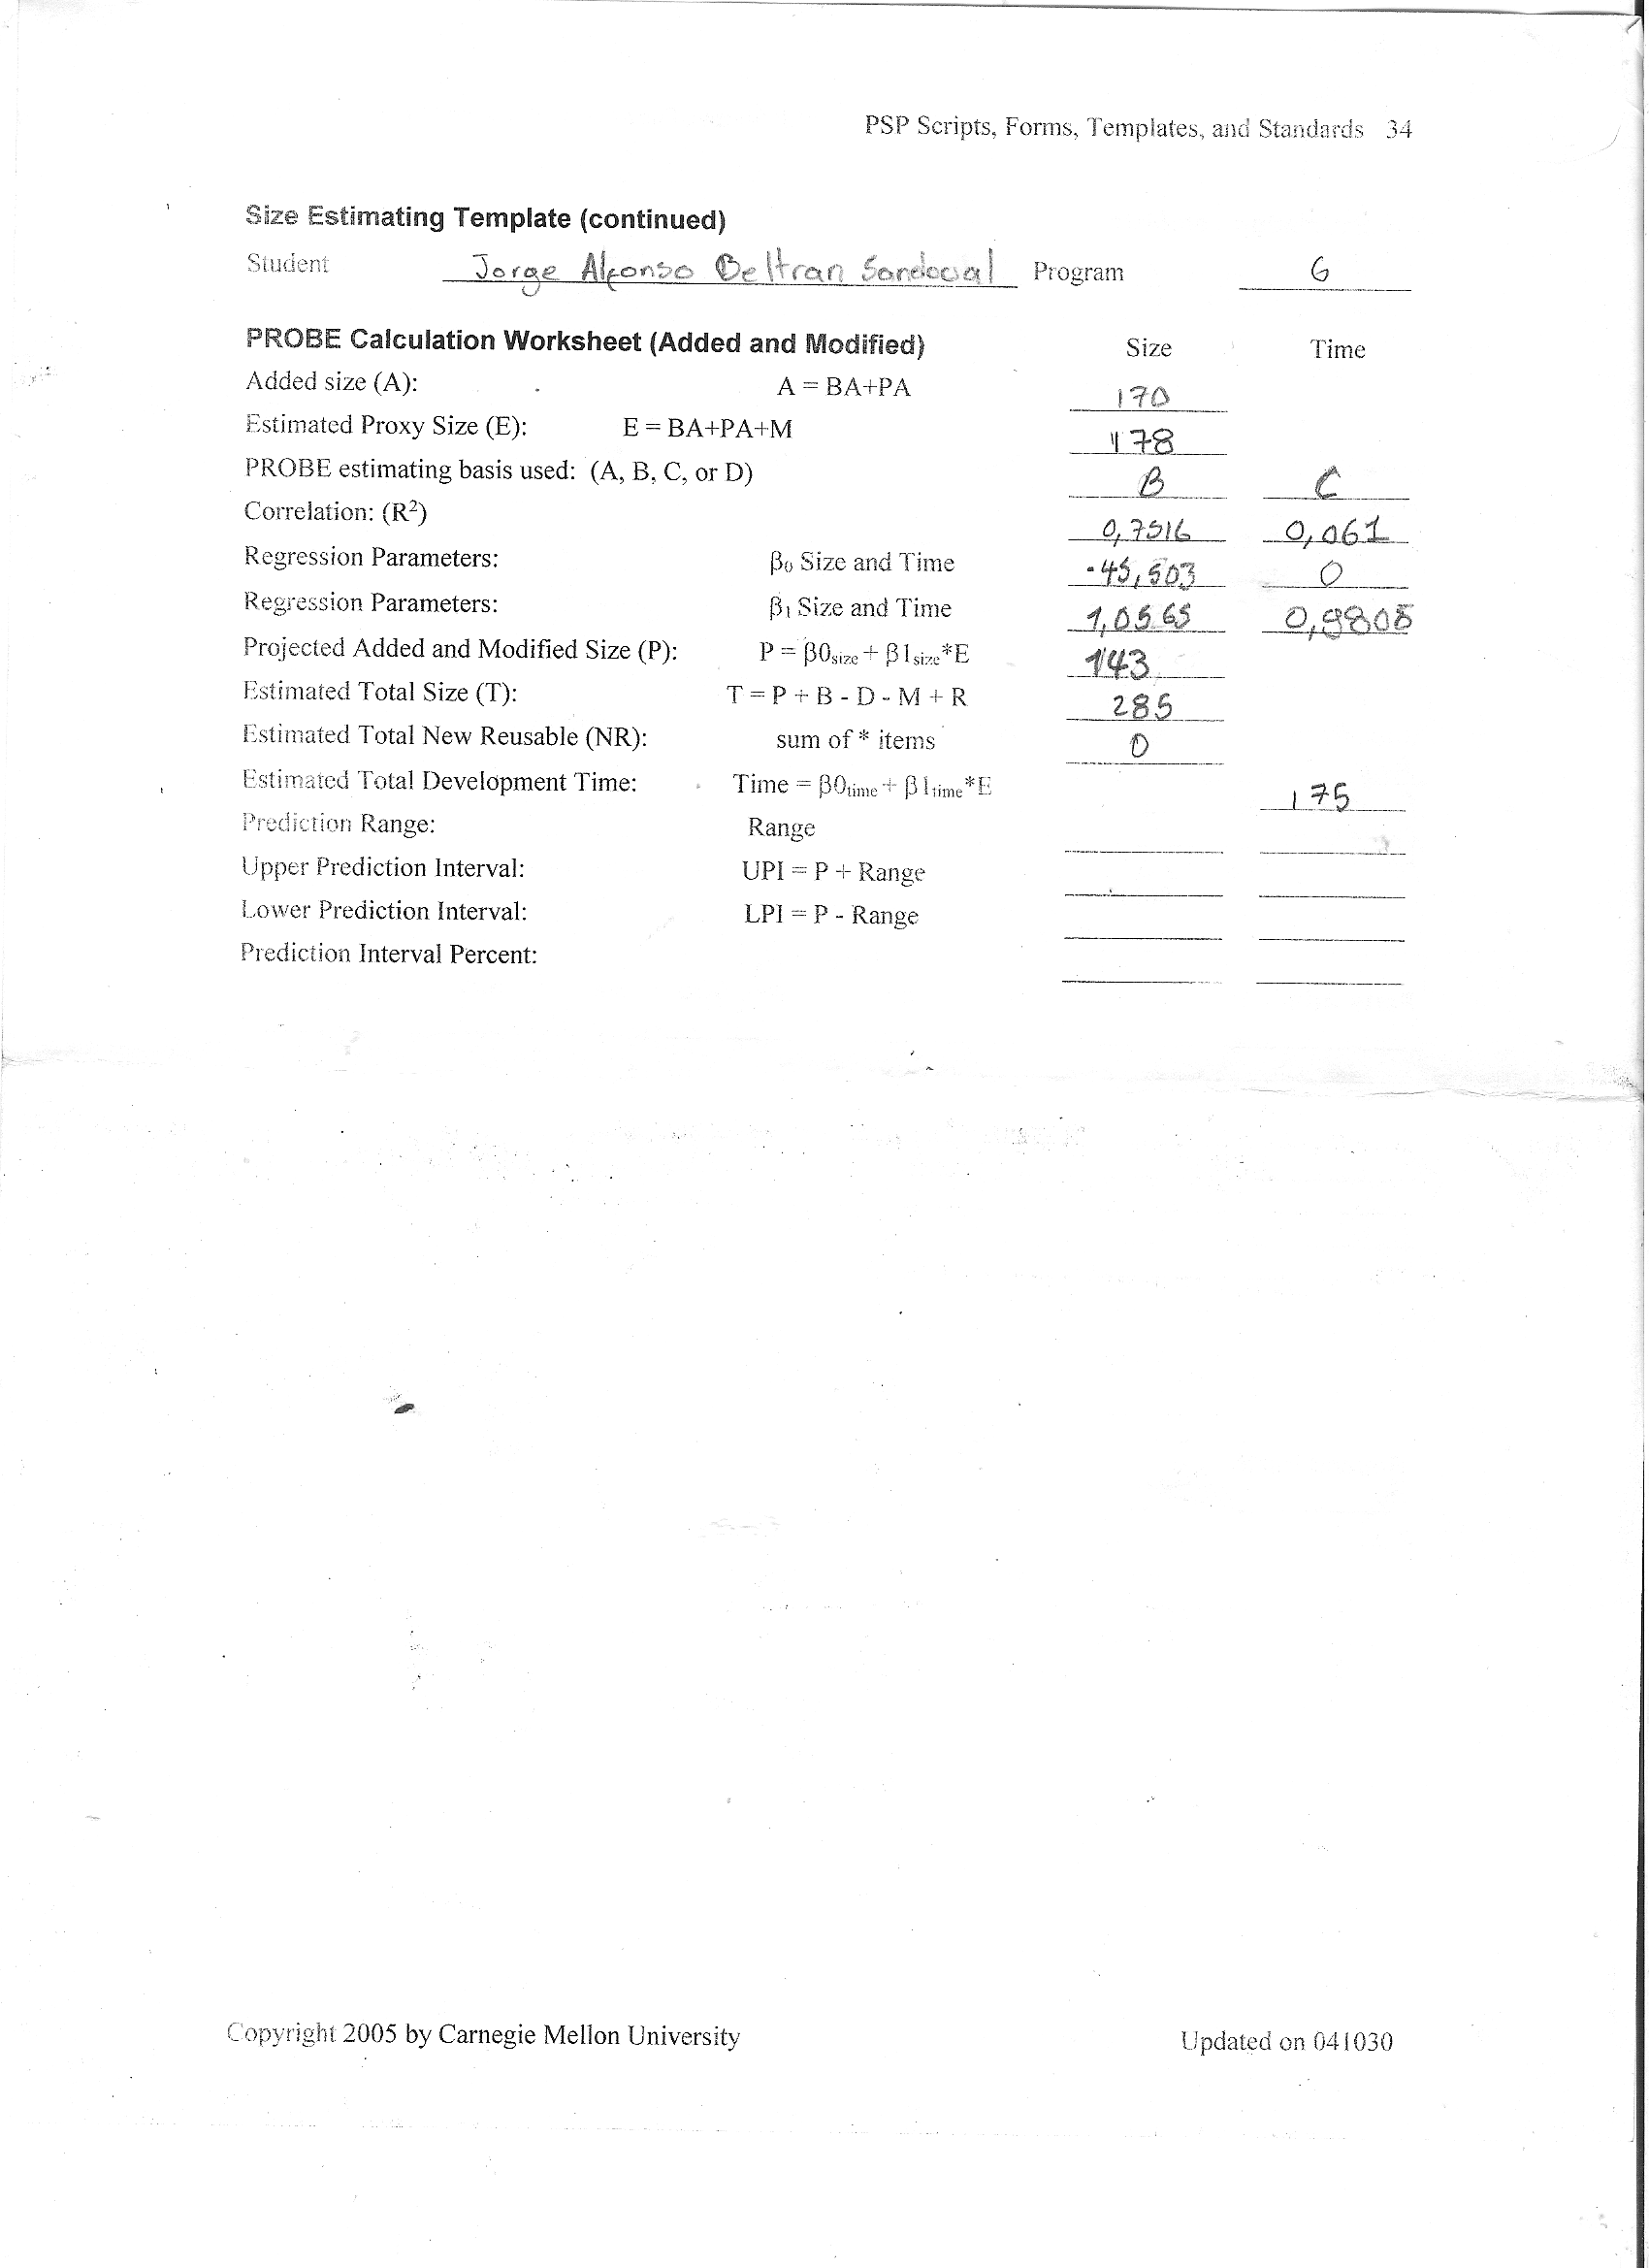 PSP Scripts, Forms, Templates, and Standards 34
Size Estimating Template (continued)
Student Jorge Alfonso Beltran Sandoval Program 6
PROBE Calculation Worksheet (Added and Modified) Size Time
Added size (A): A = BA+PA 170
Estimated Proxy Size (E): E = BA+PA+M 178
PROBE estimating basis used: (A, B, C, or D) B C
Correlation: (R²) 0,7516 0,061
Regression Parameters: β₀ Size and Time -45,503 0
Regression Parameters: β₁ Size and Time 1,0565 0,9805
Projected Added and Modified Size (P): P = β0size + β1size*E 143
Estimated Total Size (T): T = P + B - D - M + R 285
Estimated Total New Reusable (NR): sum of * items 0
Estimated Total Development Time: Time = β0time + β1time*E 175
Prediction Range: Range
Upper Prediction Interval: UPI = P + Range
Lower Prediction Interval: LPI = P - Range
Prediction Interval Percent:
Copyright 2005 by Carnegie Mellon University Updated on 041030